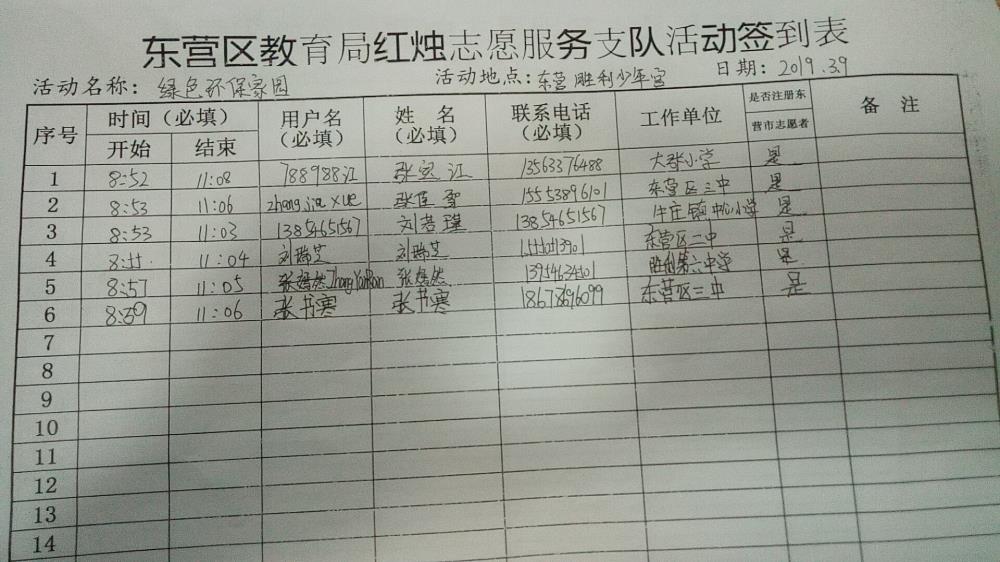 东营区教育局红烛志愿服务支队活动签到表
活动名称：绿色环保家园 活动地点：东营胜利少年宫 日期：2019.3.9
序号 时间（必填） 用户名（必填） 姓名（必填） 联系电话（必填） 工作单位 是否注册东营市志愿者 备注
开始 结束
1 8:52 11:08 788988江 张宝江 13563376488 大张小学 是
2 8:53 11:06 zhang jia xue 张佳雪 15553896101 东营区三中 是
3 8:53 11:03 13854651567 刘若瑾 13854651567 牛庄镇中心小学 是
4 11:04 刘瑞芝 刘瑞芝 东营区二中 是
5 8:57 11:05 张嫣然ZhangYanRan 张嫣然 胜利第六中学 是
6 8:59 11:06 张书寒 张书寒 18678696099 东营区三中 是
7
8
9
10
11
12
13
14